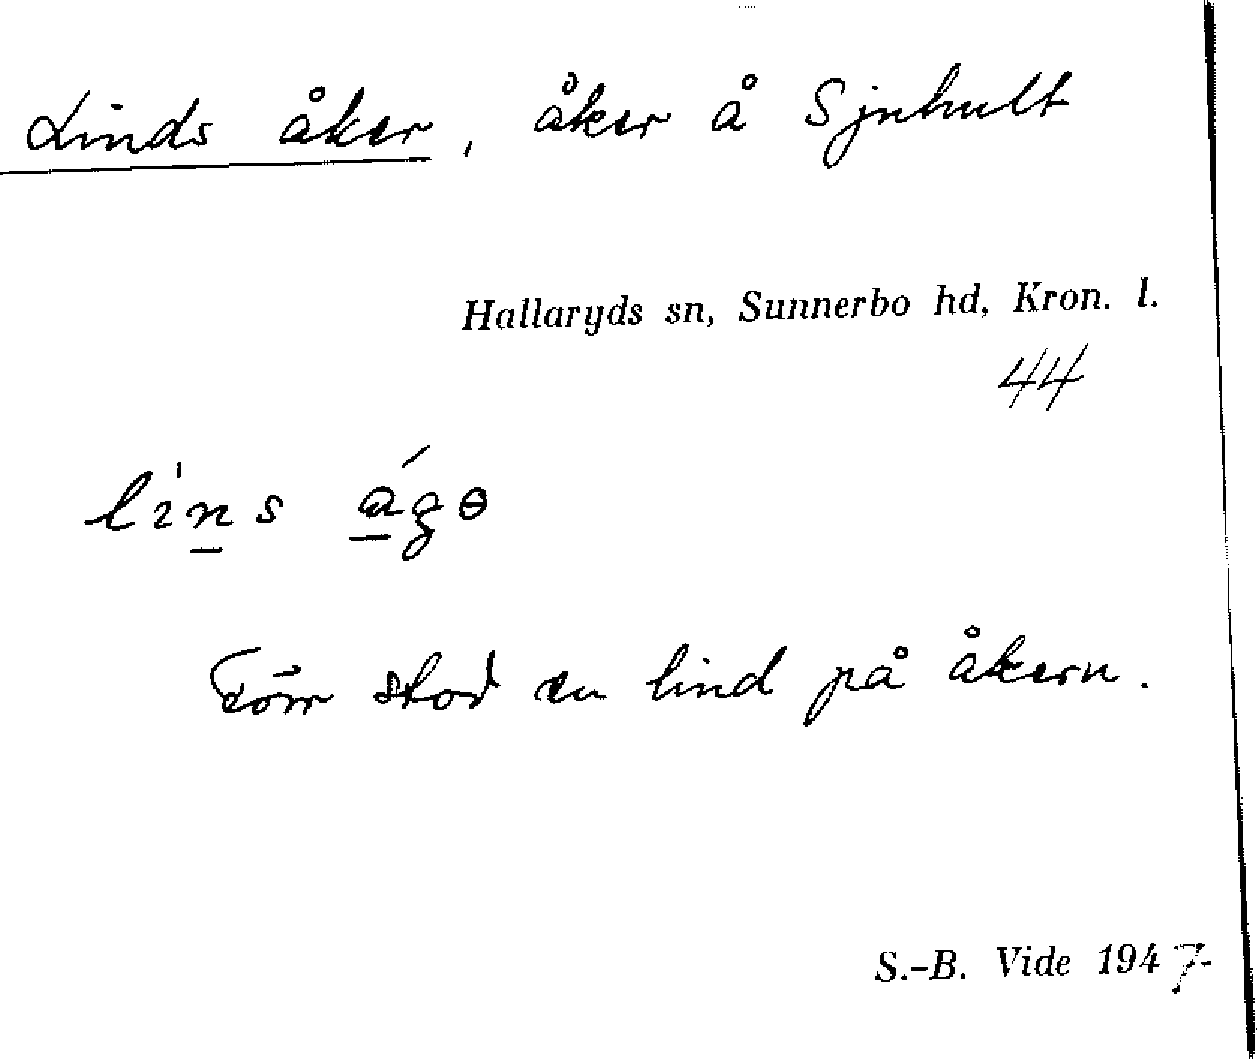 Linds åker, åker å Sjuhult
Hallaryds sn, Sunnerbo hd, Kron. l.
44
lins ágө
Förr stod en lind på åkern.
S.-B. Vide 1947